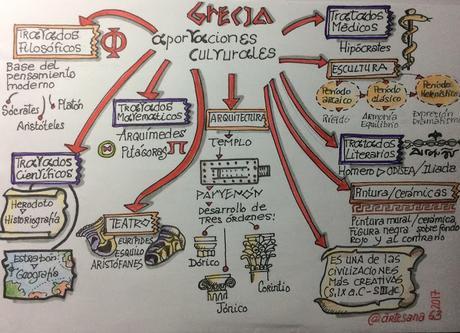 GRECIA
aportaciones
culturales
Tratados
Filosóficos
Φ
Base del
pensamiento
moderno
Sócrates
Platón
Aristóteles
Tratados
Científicos
Herodoto
Historiografía
Estrabón
Geografía
Tratados
Matemáticos
Arquímedes
Pitágoras
π
TEATRO
EURÍPIDES
ESQUILO
ARISTÓFANES
ARQUITECTURA
TEMPLO
PARTENÓN
Desarrollo de
Tres órdenes:
Dórico
Jónico
Corintio
Tratados
Médicos
Hipócrates
ESCULTURA
Período
arcaico
Período
clásico
Período
Helenístico
Rígido
Armonía
Equilibrio
Expresión
Dramatismo
Tratados
Literarios
Homero
ODISEA
Iliada
Pintura/cerámicas
Pintura mural/cerámica,
figura negra sobre fondo
rojo y al contrario
ES UNA de LAS
CIVILIZACIONES
MÁS CREATIVAS
(S.IX a.C - S.III dc)
@artesana
63
2017